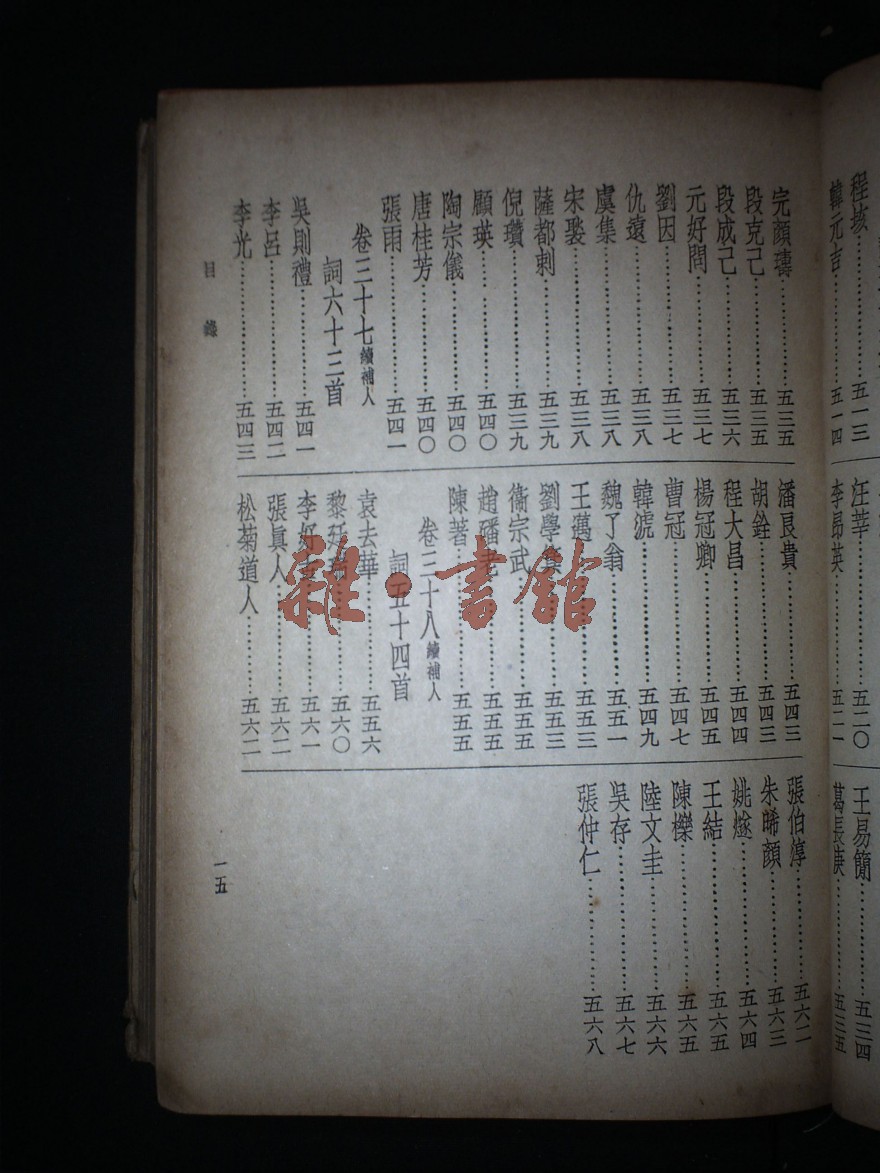 程垓……五一三
韓元吉……五一四
汪莘……五二〇
李昂英……五二一
王易簡……五三四
葛長庚……五三五
完顏璹……五三五
段克己……五三五
段成己……五三六
元好問……五三七
劉因……五三七
仇遠……五三八
虞集……五三八
宋褧……五三八
薩都剌……五三九
倪瓚……五三九
顧瑛……五四〇
陶宗儀……五四〇
唐桂芳……五四〇
張雨……五四一
卷三十七續補人
詞六十三首
吳則禮……五四一
李呂……五四二
李光……五四三
潘良貴……五四三
胡銓……五四三
程大昌……五四四
楊冠卿……五四五
曹冠……五四七
韓淲……五四九
魏了翁……五五一
王邁……五五三
劉學箕……五五三
衞宗武……五五五
趙磻老……五五五
陳著……五五五
卷三十八續補人
詞五十四首
袁去華……五五六
黎廷瑞……五六〇
李好……五六一
張眞人……五六二
松菊道人……五六二
張伯淳……五六二
朱晞顏……五六三
姚燧……五六四
王結……五六五
陳櫟……五六五
陸文圭……五六六
吳存……五六七
張仲仁……五六八
目錄
一五
雜·書館